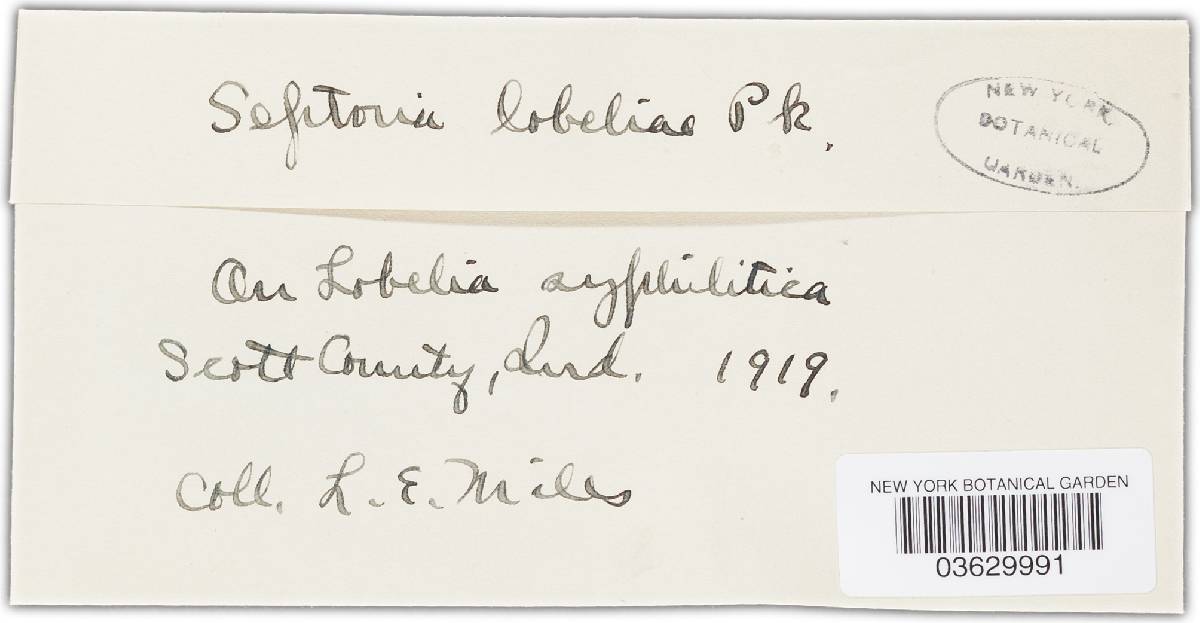 Septoria lobeliae Pk.
NEW YORK
BOTANICAL
GARDEN.
On Lobelia syphilitica
Scott County, Ind. 1919.
Coll. L. E. Miles
NEW YORK BOTANICAL GARDEN
03629991